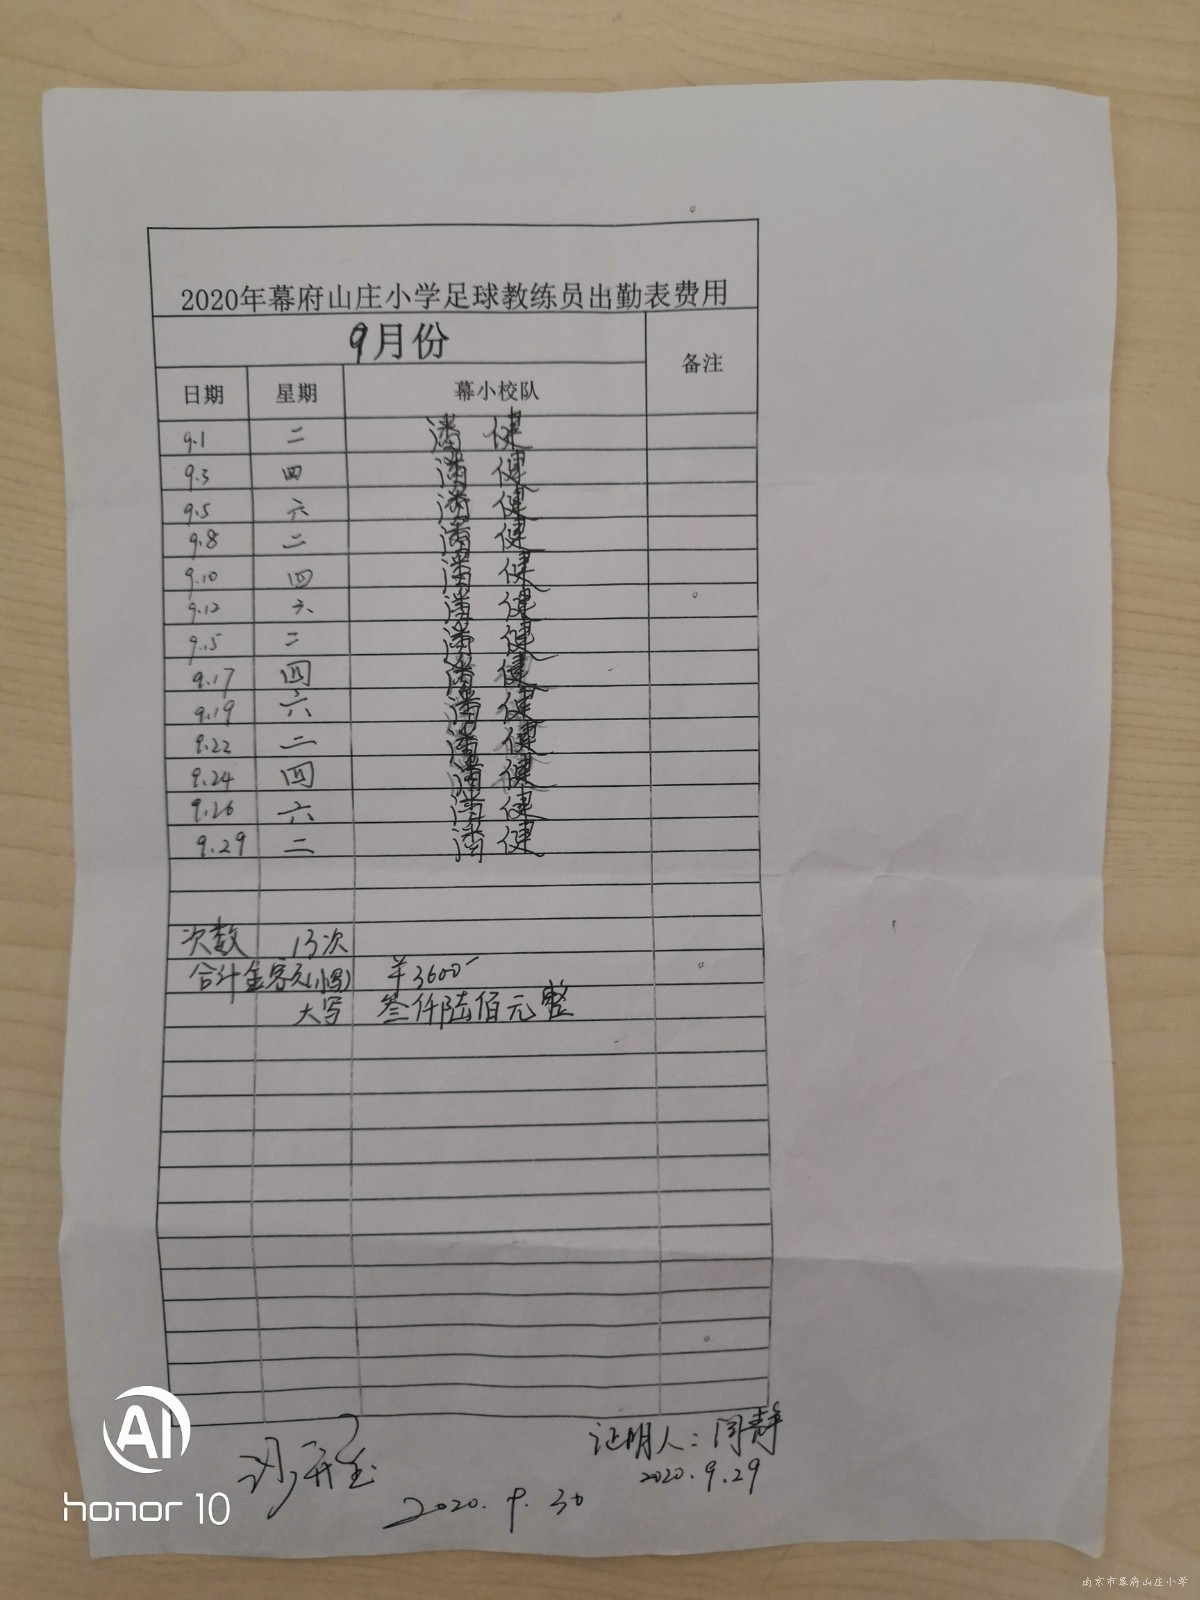 2020年幕府山庄小学足球教练员出勤表费用
9月份
备注
日期 星期 幕小校队
9.1 二 潘 健
9.3 四 潘 健
9.5 六 潘 健
9.8 二 潘 健
9.10 四 潘 健
9.12 六 潘 健
9.15 二 潘 健
9.17 四 潘 健
9.19 六 潘 健
9.22 二 潘 健
9.24 四 潘 健
9.26 六 潘 健
9.29 二 潘 健
次数 13次
合计金额元(小写) ¥3600
大写 叁仟陆佰元整
证明人:闫静
2020.9.29
2020.9.30
AI
honor 10
南京市幕府山庄小学